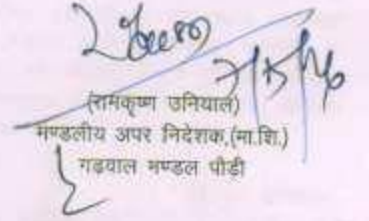 (रामकृष्ण उनियाल)
मण्डलीय अपर निदेशक,(मा.शि.)
गढ़वाल मण्डल पौड़ी